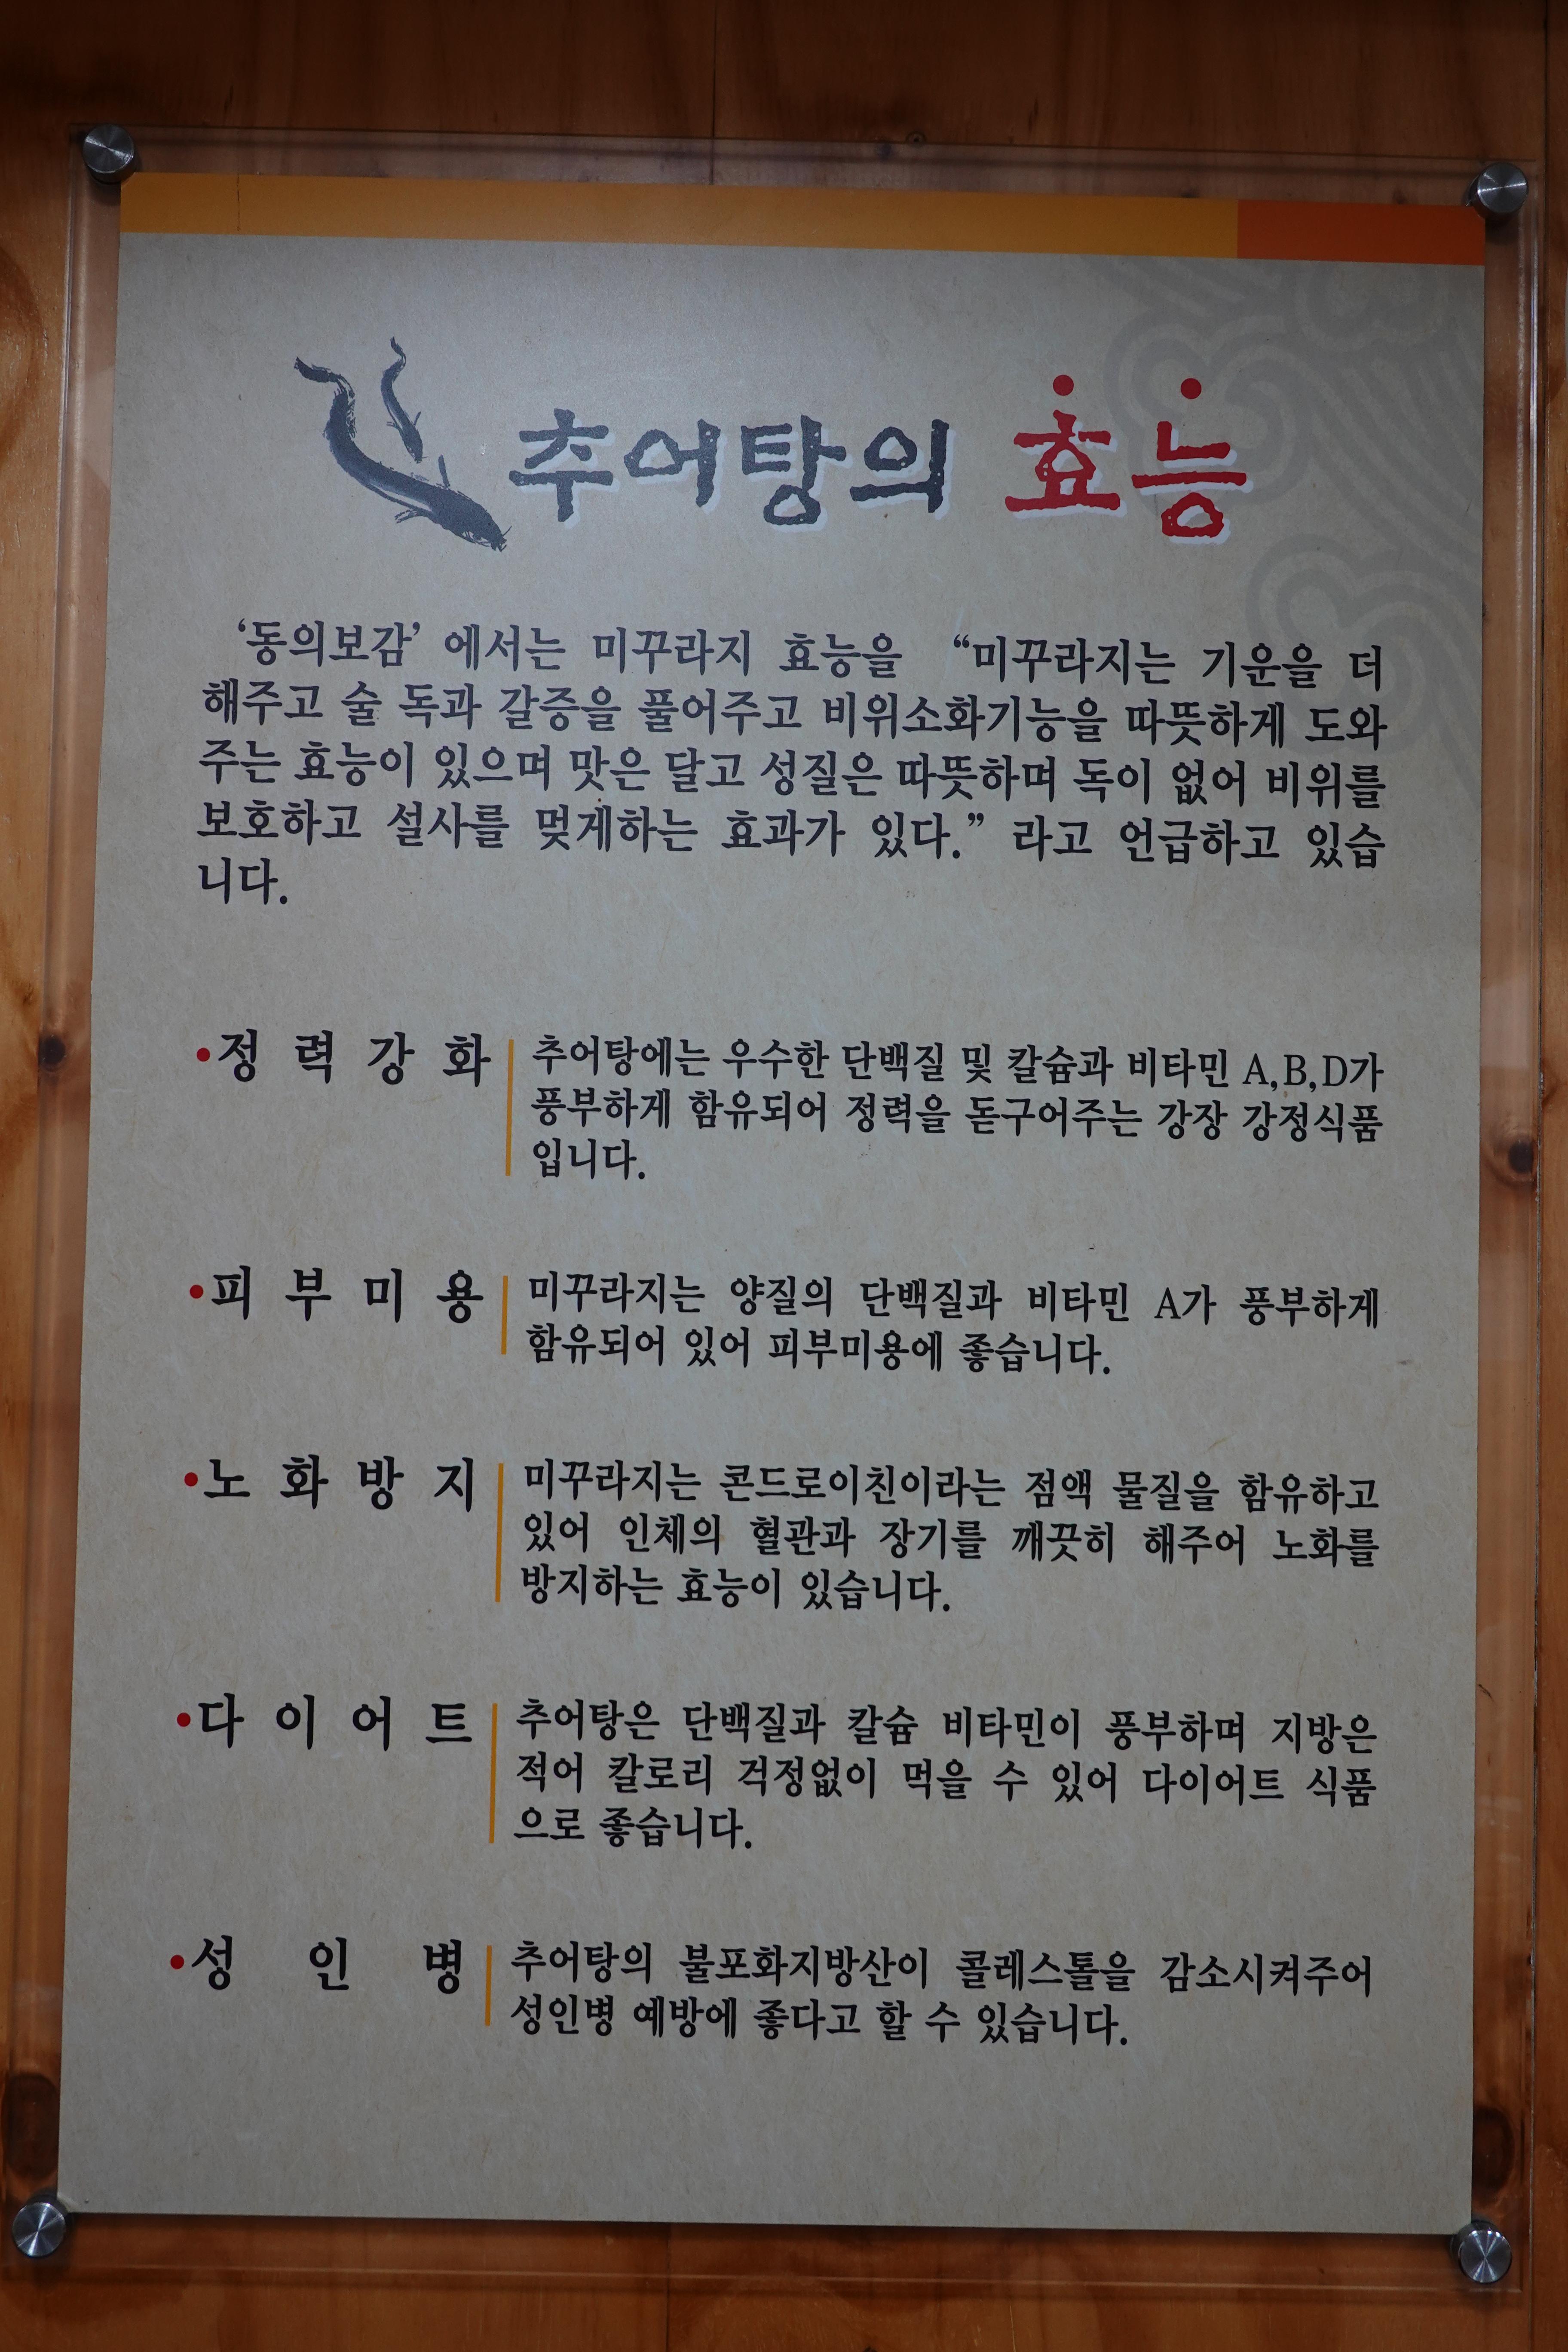 추어탕의 효능
‘동의보감’ 에서는 미꾸라지 효능을 “미꾸라지는 기운을 더
해주고 술 독과 갈증을 풀어주고 비위소화기능을 따뜻하게 도와
주는 효능이 있으며 맛은 달고 성질은 따뜻하며 독이 없어 비위를
보호하고 설사를 멎게하는 효과가 있다.” 라고 언급하고 있습
니다.
•정력강화
추어탕에는 우수한 단백질 및 칼슘과 비타민 A,B,D가
풍부하게 함유되어 정력을 돋구어주는 강장 강정식품
입니다.
•피부미용
미꾸라지는 양질의 단백질과 비타민 A가 풍부하게
함유되어 있어 피부미용에 좋습니다.
•노화방지
미꾸라지는 콘드로이친이라는 점액 물질을 함유하고
있어 인체의 혈관과 장기를 깨끗히 해주어 노화를
방지하는 효능이 있습니다.
•다이어트
추어탕은 단백질과 칼슘 비타민이 풍부하며 지방은
적어 칼로리 걱정없이 먹을 수 있어 다이어트 식품
으로 좋습니다.
•성인병
추어탕의 불포화지방산이 콜레스톨을 감소시켜주어
성인병 예방에 좋다고 할 수 있습니다.